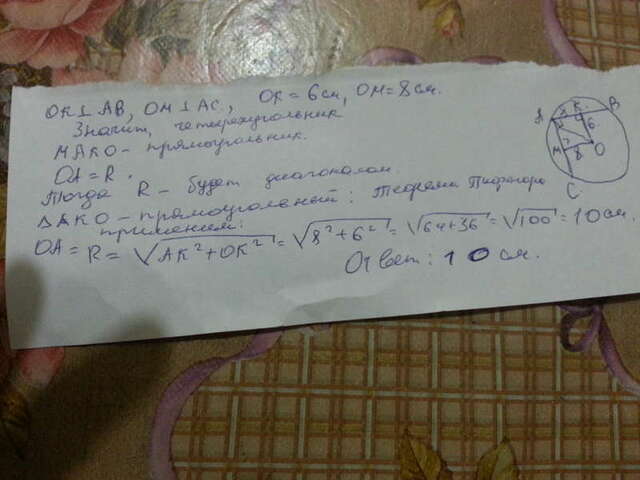 OK⊥AB, OM⊥AC, OK=6см, OM=8см.
Значит, четырехугольник
MAKO-прямоугольник.
OA=R.
Тогда R - будет диагональю.
△AKO-прямоугольный: Теорема Пифагора
применим:
OA=R=√AK²+OK²=√8²+6²=√64+36=√100=10см.
Ответ: 10см.
A
K
B
6
M
8
O
C